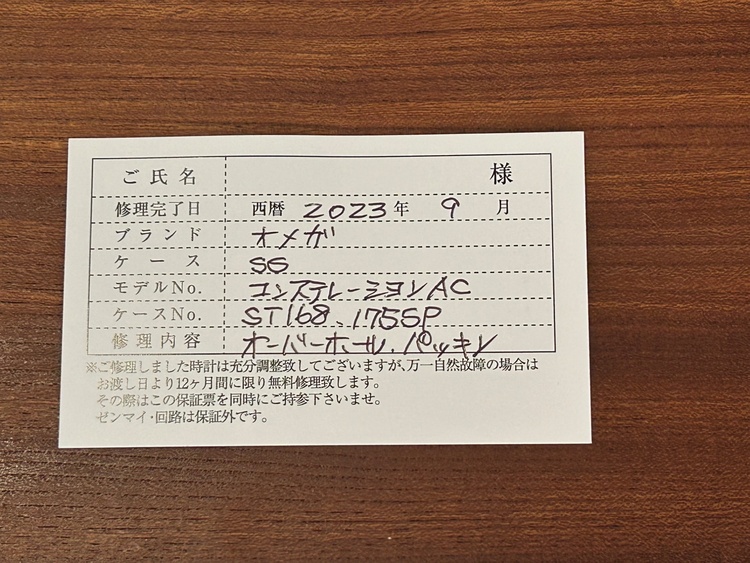 ご氏名 様
修理完了日 西暦 2023年 9 月
ブランド オメガ
ケース SG
モデルNo. コンステレーションAC
ケースNo. ST168.1755P
修理内容 オーバーホール.パッキン
※ご修理しました時計は充分調整致してございますが、万一自然故障の場合は
お渡し日より12ヶ月間に限り無料修理致します。
その際はこの保証票を同時にご持参下さいませ。
ゼンマイ・回路は保証外です。